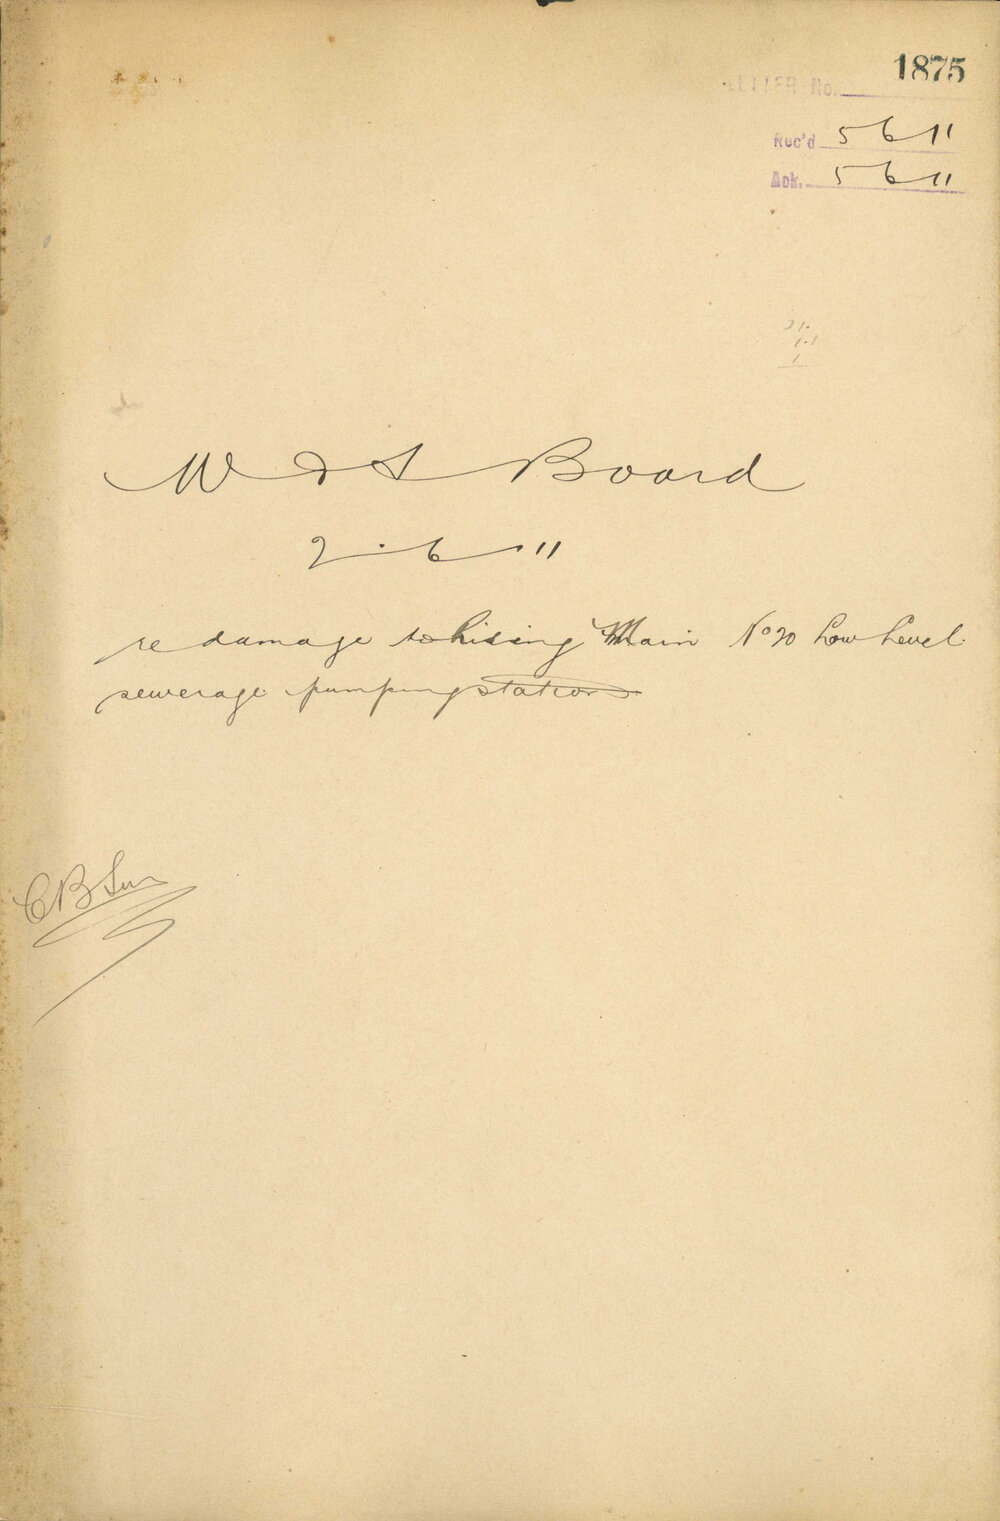 1875
LETTER No.
Rec'd 5 6 11
Ack. 5 6 11
W & S Board
2.6.11
re damage to Rising Main No 20 Low Level
sewerage pumping station
C B